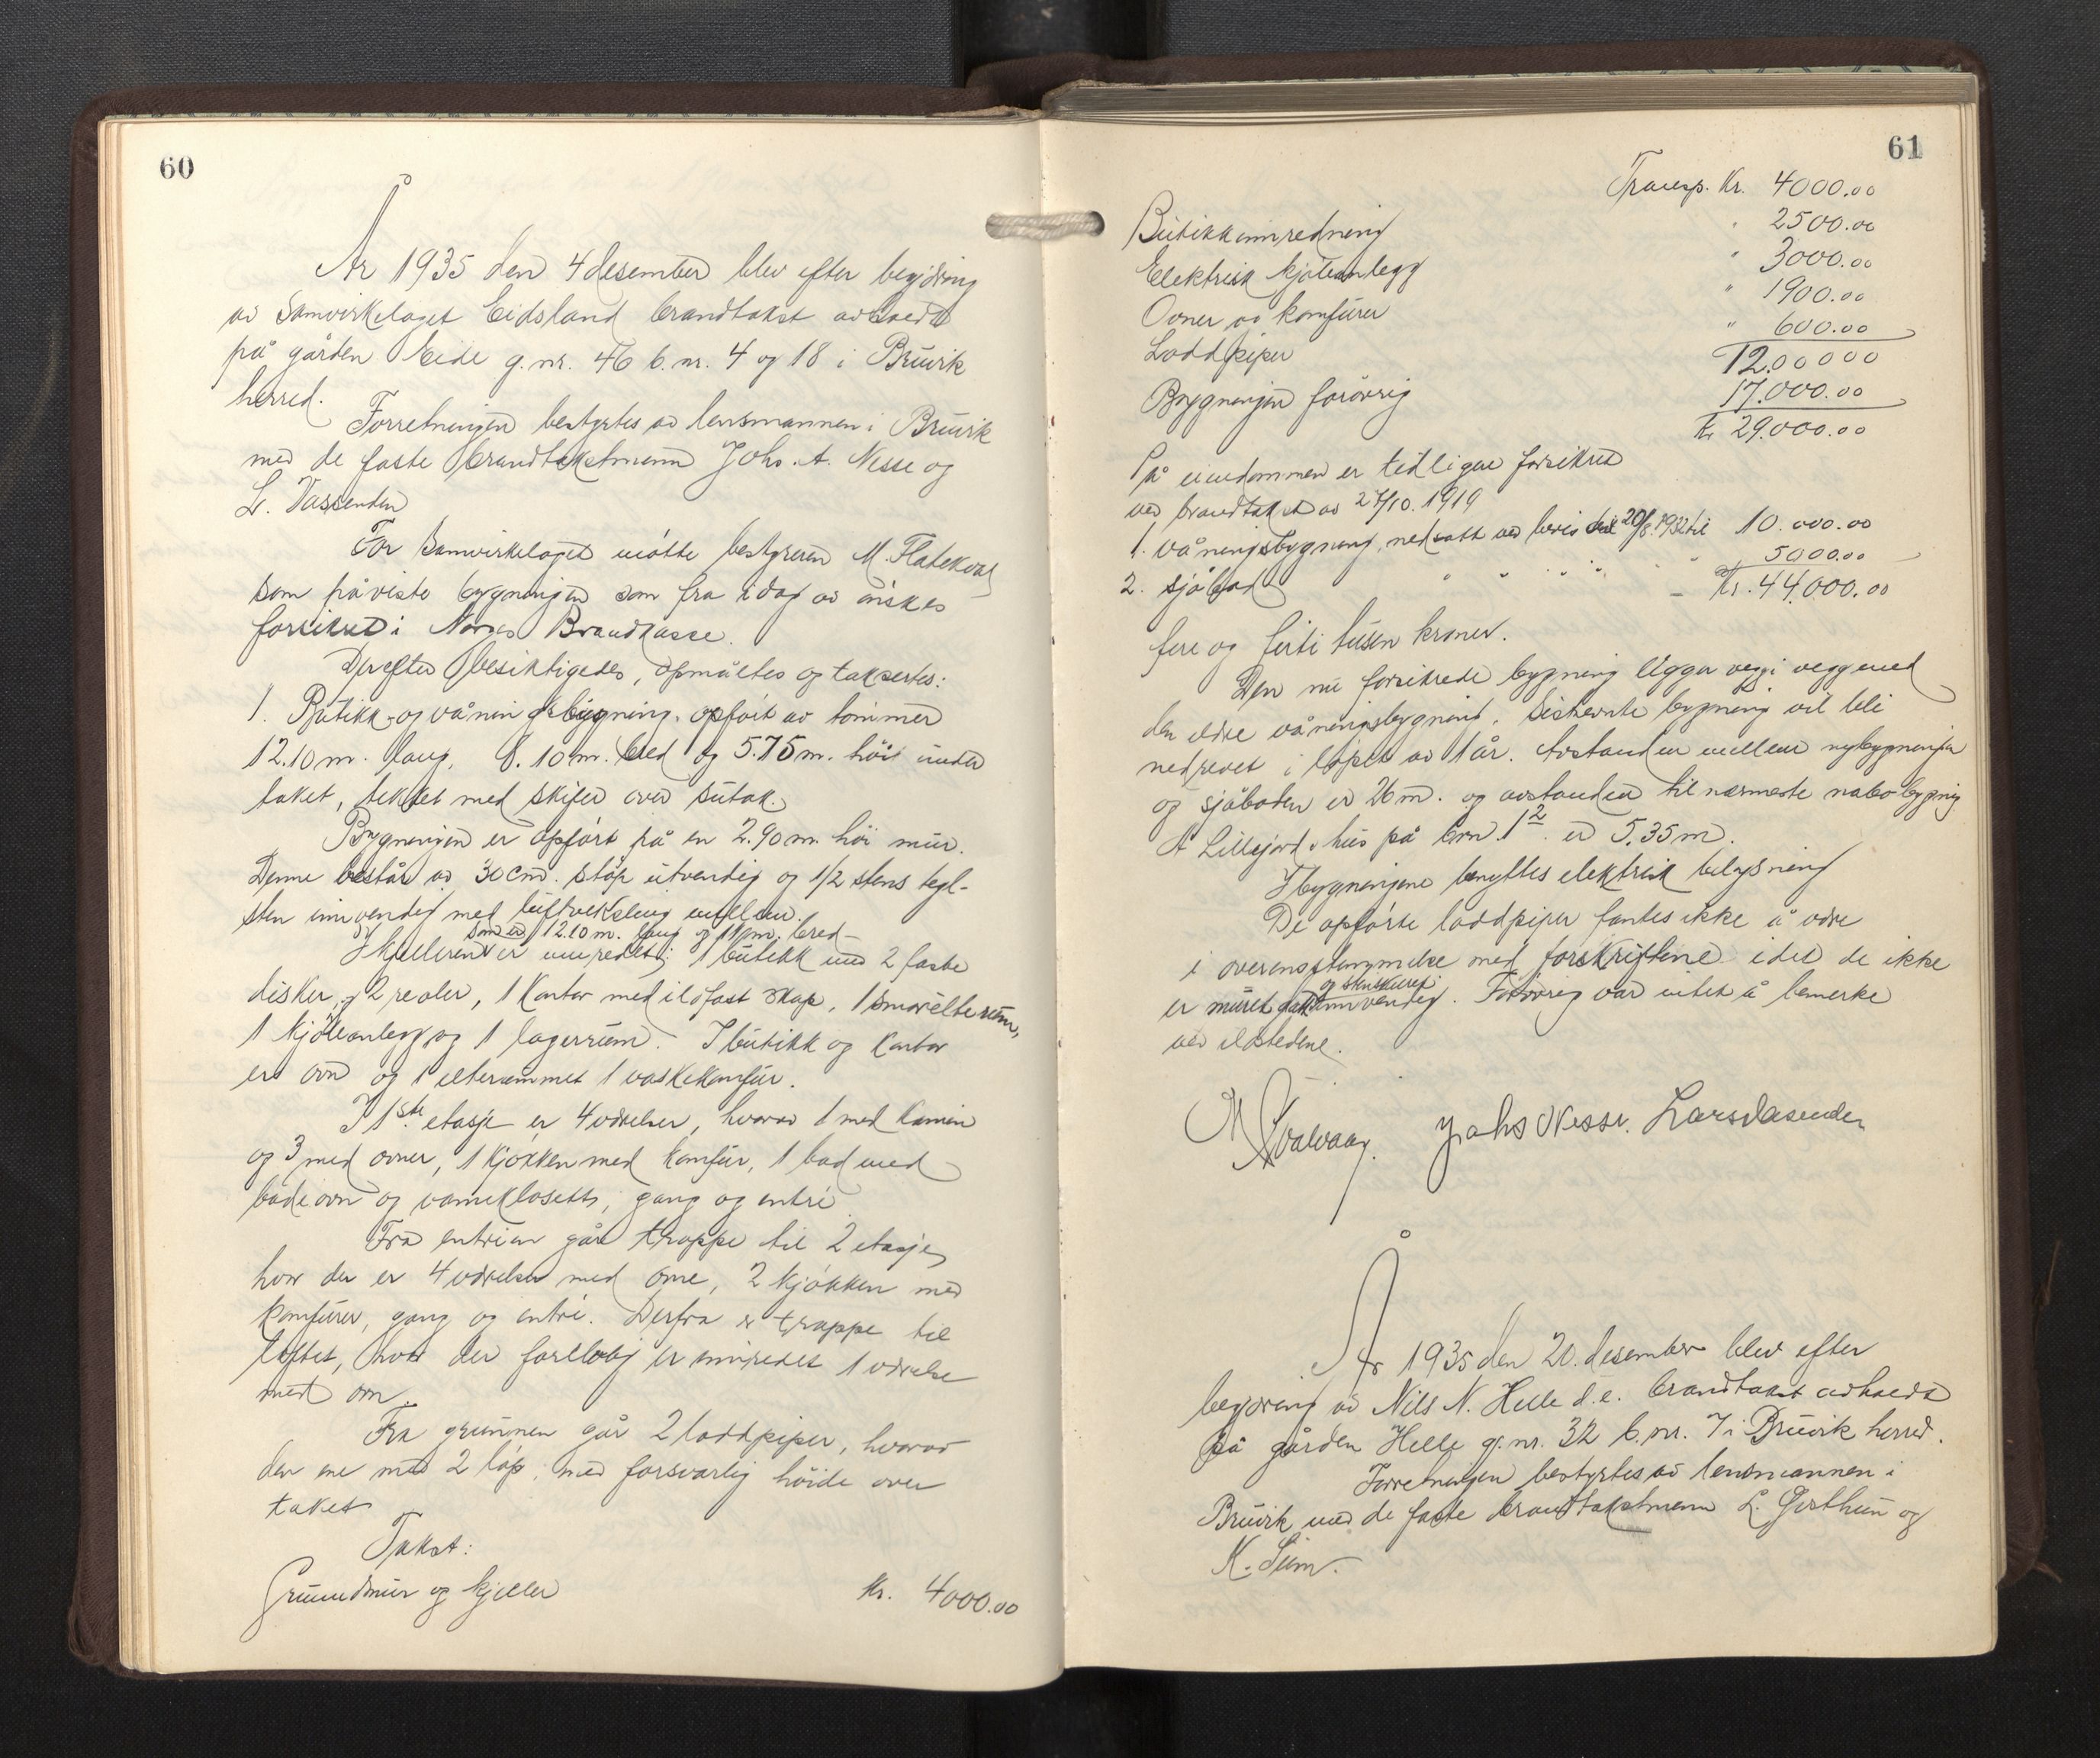 60
År 1935 den 4 desember blev efter begjæring
av Samvirkelaget Eidsland brandtakst avholdt
på gården Eide g.nr. 46 b.nr. 4 og 18 i Bruvik
herred.
Forretningen bestyrtes av lensmannen i Bruvik
med de faste brandtakstmenn Johs. A. Nesse og
L. Vassenden
For Samvirkelaget møtte bestyreren M. Flatekval
som påviste bygningen som fra idag av ønskes
forsikret i Norges Brandkasse.
Derefter besiktigedes, opmåltes og taksertes:
1. Butikk og våningsbygning, opført av tømmer
12.10 m. lang, 8.10 m. bred og 5.75 m. høi under
taket, tekket med skifer over sutak.
Bygningen er opført på en 2.90 m. høi mur.
Denne består av 30 cm. støp utvendig og 1/2 stens tegl-
sten innvendig med luftveksling mellem.
som er 12.10 m. lang og 11 m. bred
I kjelleren er innredet: 1 butikk med 2 faste
disker, og 2 reoler, 1 kontor med ildfast skap, 1 smørelterum,
1 kjøleanlegg og 1 lagerrum. I butikk og kontor
er ovn og i elterummet 1 vaskekomfur.
I 1ste etasje er 4 værelser, hvorav 1 med kamin
og 3 med ovner, 1 kjøkken med komfur, 1 bad med
badeovn og vannklosett, gang og entré
Fra entréen går trappe til 2 etasje,
hvor der er 4 værelser med ovne, 2 kjøkken med
komfurer, gang og entré. Derfra er trappe til
loftet, hvor der foreløbig er innredet 1 værelse
med ovn.
Fra grunnen går 2 loddpiper, hvorav
den ene med 2 løp, med forsvarlig høide over
taket
Takst:
Grunnmur og kjeller Kr. 4000.00
61
Transp. Kr. 4000.00
Butikkinnredning " 2500.00
Elektrisk kjøleanlegg " 3000.00
Ovner og komfurer " 1900.00
Loddpiper " 600.00
12.000 00
Bygningen forøvrig 17.000.00
Kr 29.000.00
På eiendommen er tidligere forsikret
ved brandtakst av 27/10. 1919
1. våningsbygning, nedsatt ved brev 20/8. 1932 til 10.000.00
2. sjøbod " " " " " " 5000.00
Kr. 44.000.00
fire og førti tusen kroner.
Den nu forsikrede bygning ligger vegg i vegg med
den eldre våningsbygning. Sistnevnte bygning vil bli
nedrevet i løpet av 1 år. Avstanden mellem nybygningen
og sjøboden er 26 m. og avstanden til nærmeste nabobygnig
A Lillejord's hus på brn. 12 er 5.35 m.
I bygningene benyttes elektrisk belysning
De opførte loddpiper fantes ikke å være
i overensstemmelse med forskriftene idet de ikke
og slemskuret
er muret innvendig. Forøvrig var intet å bemerke
ved ildstedene.
Johs Nesse. Lars Vasenden
År 1935 den 20. desember blev efter
begjæring av Nils N. Helle d.e. brandtakst avholdt
på gården Helle g.nr. 32 b.nr. 7 i Bruvik herred.
Forretningen bestyrtes av lensmannen i
Bruvik med de faste brandtakstmenn L. Gjerthun og
K. Sum.